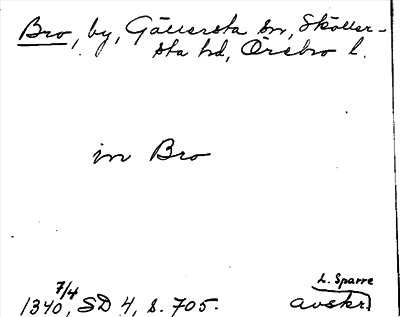 Bro, by, Gällersta sn, Sköller-
sta hd, Örebro l.
in Bro
7/4
L. Sparre
1340, SD 4, s. 705.
avskr.